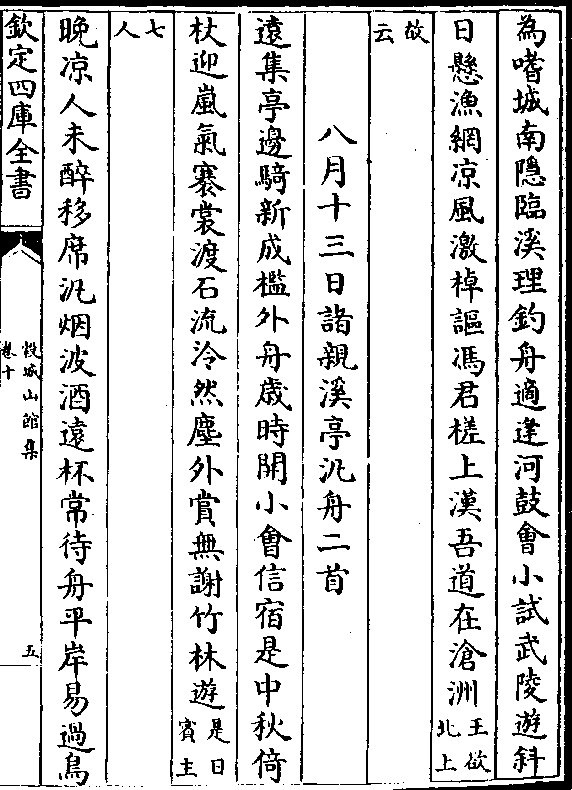 為嗜城南隱臨溪理釣舟適逢河鼓會小試武陵遊斜
日懸漁網凉風激棹謳馮君槎上漢吾道在滄洲王欲北上
故云
八月十三日諸親溪亭汎舟二首
遠集亭邊騎新成檻外舟歳時開小會信宿是中秋倚
杖迎嵐氣褰裳渡石流泠然塵外賞無謝竹林遊是日賓主
七人
晚凉人未醉移席汎烟波酒遠杯常待舟平岸易過鳥
欽定四庫全書
穀城山館集
卷十
五